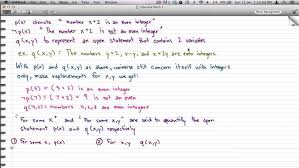 p(x) denote "number x+2 is an even integer"
¬p(x) "The number x+2 is not an even integer"
q(x,y) to represent an open statement that contains 2 variables
ex. q(x,y): The numbers y+2, x-y, and x+2y are even integers
With p(x) and q(x,y) as above, universe still concern itself with integers
only, make replacements for x, y we get:
p(5) = (5+2) is an even integer
¬p(7) = (7+2) = 9 is not an even
q(4,2) = numbers 4, 2, 8 are even integer
"For some x" and "For some x,y" are said to quantify the open
statement p(x) and q(x,y) respectively
① For some x, p(x) ② For x,y q(x,y)